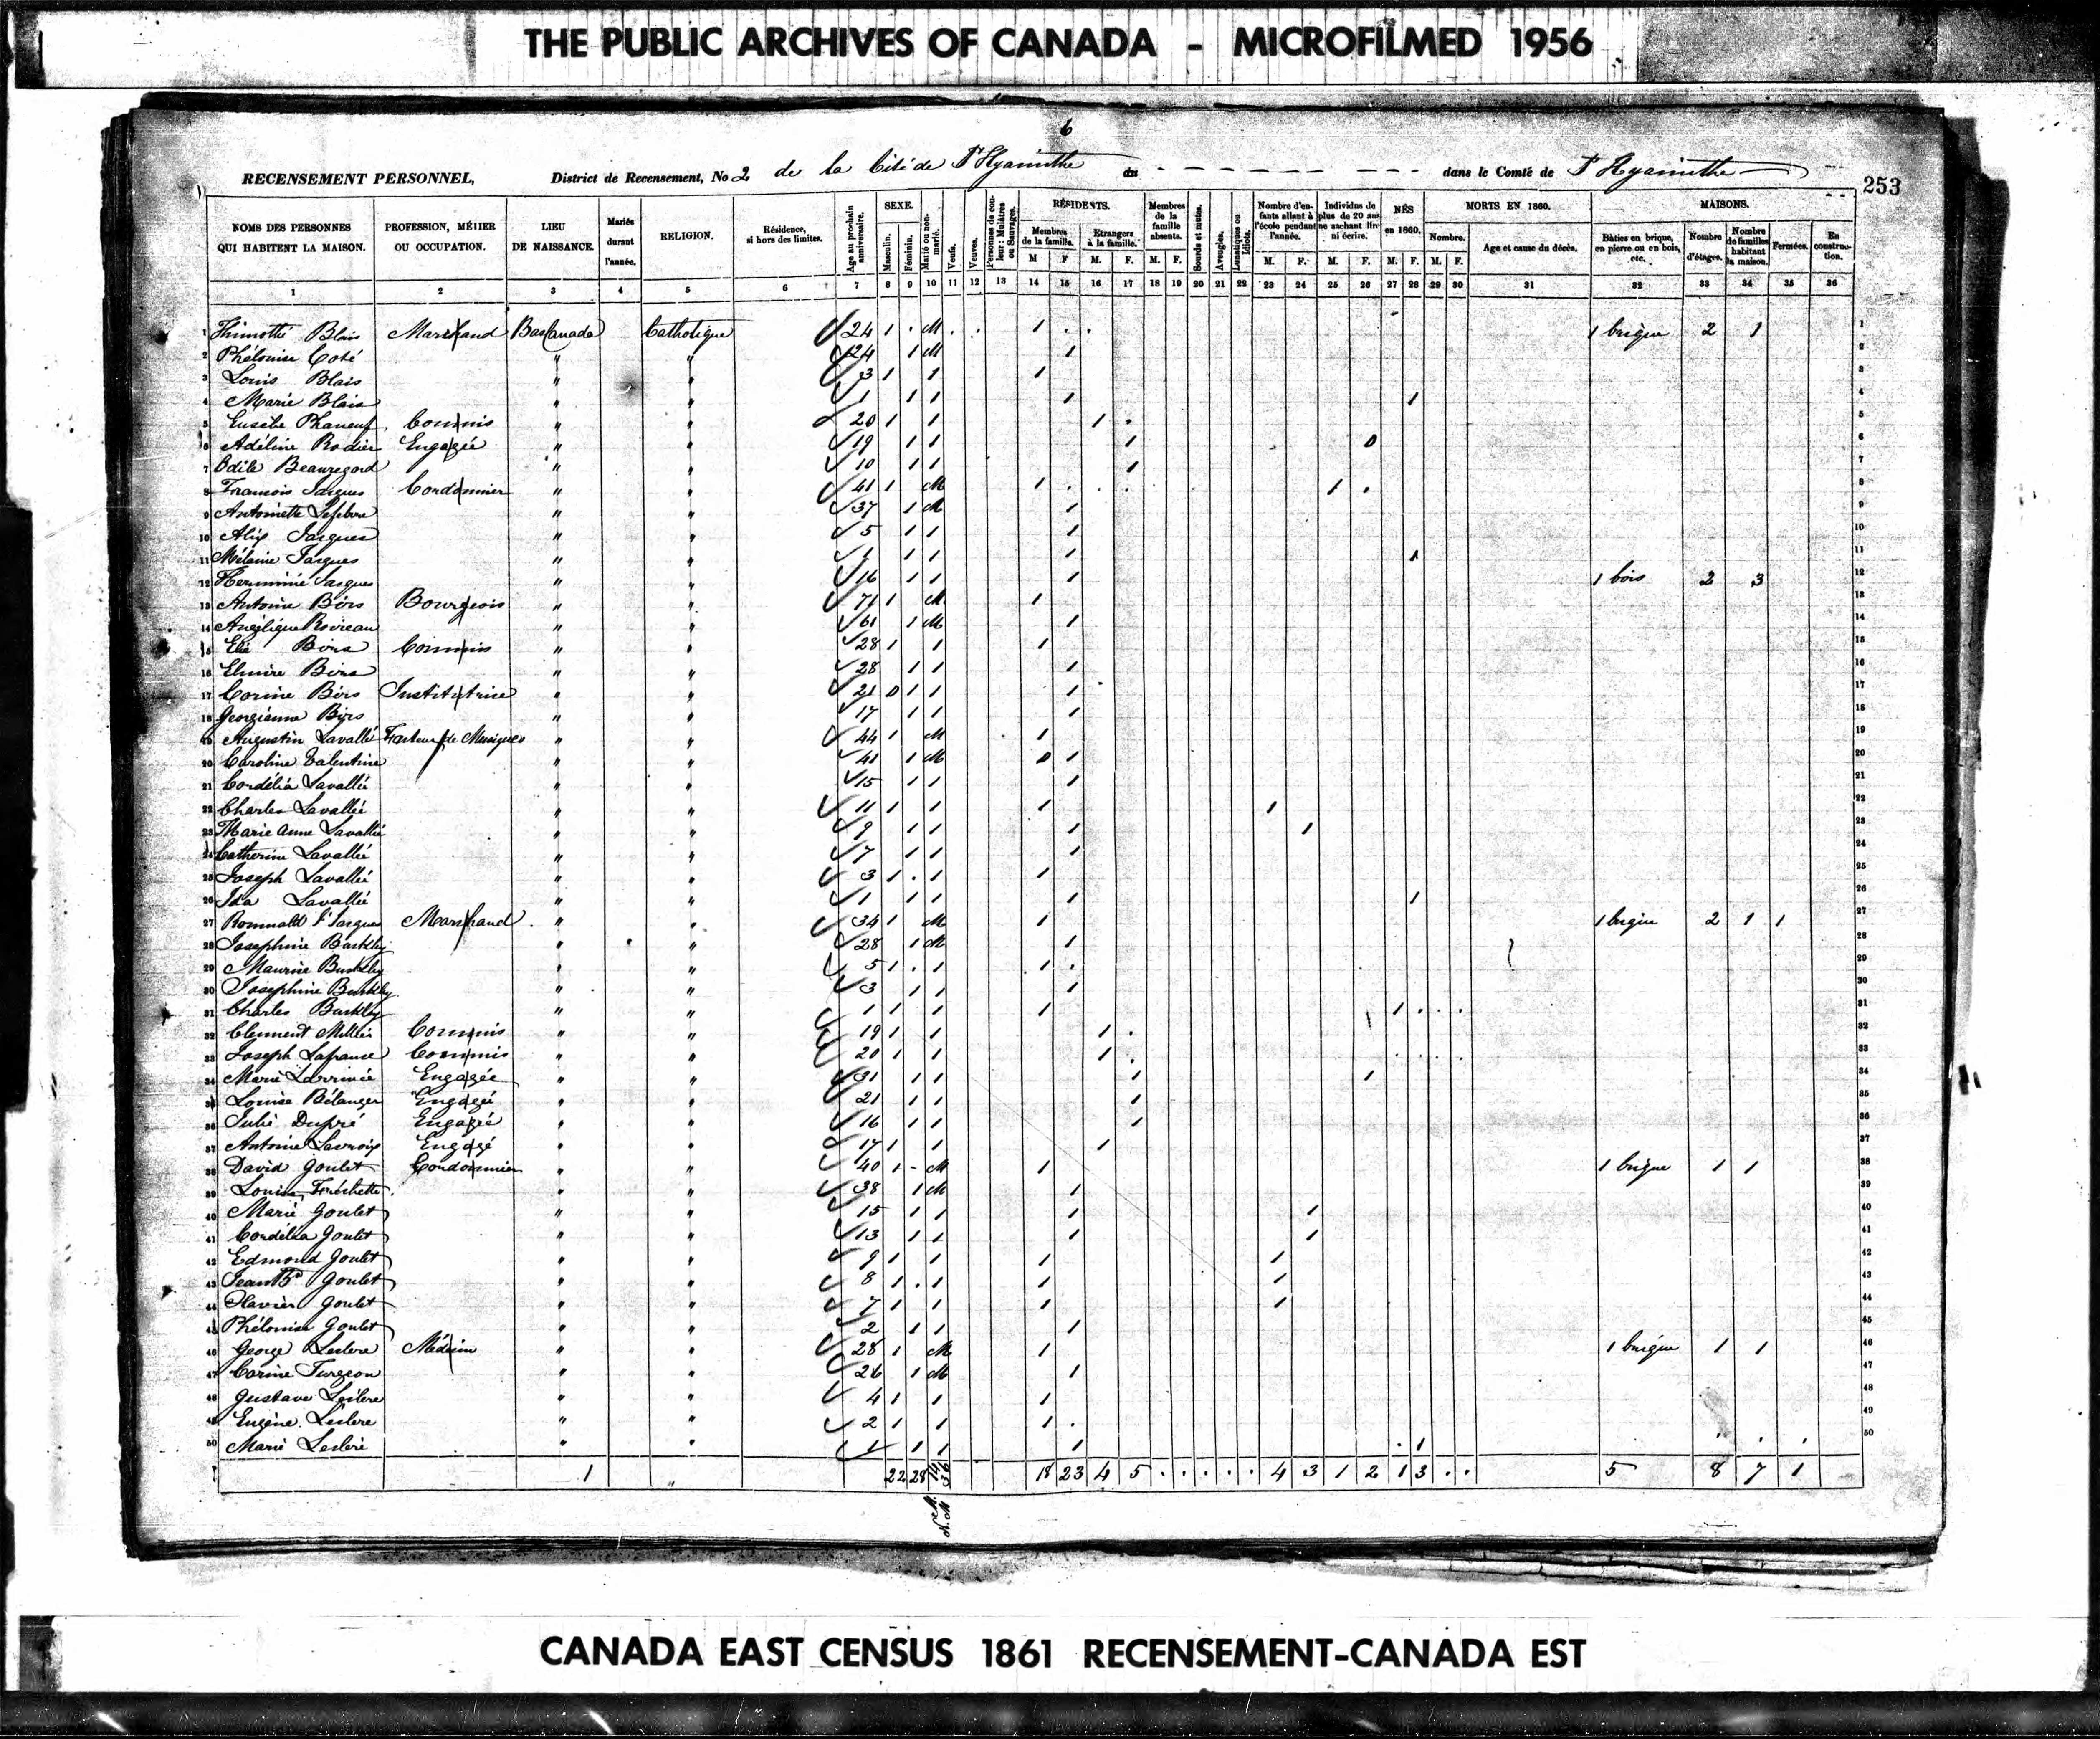 THE PUBLIC ARCHIVES OF CANADA - MICROFILMED 1956
6
RECENSEMENT PERSONNEL, District de Recensement, No 2 de la Cité de St Hyacinthe du - - - - - - - - dans le Comté de St Hyacinthe
253
NOMS DES PERSONNES QUI HABITENT LA MAISON. PROFESSION, MÉTIER OU OCCUPATION. LIEU DE NAISSANCE. Mariés durant l'année. RELIGION. Résidence, si hors des limites. Age au prochain anniversaire. SEXE. Masculin. Féminin. Marié ou non-marié. Veufs. Veuves. Personnes de couleur: Mulâtres ou Sauvages. RÉSIDENTS. Membres de la famille. M F Etrangers à la famille. M. F. Membres de la famille absents. M. F. Sourds et muets. Aveugles. Lunatiques ou Idiots. Nombre d'enfants allant à l'école pendant l'année. M. F. Individus de plus de 20 ans ne sachant lire ni écrire. M. F. NÉS en 1860. M. F. MORTS EN 1860. Nombre. M. F. Age et cause du décès. MAISONS. Bâties en brique, en pierre ou en bois, etc. Nombre d'étages. Nombre de familles habitant la maison. Fermées. En construction.
1 2 3 4 5 6 7 8 9 10 11 12 13 14 15 16 17 18 19 20 21 22 23 24 25 26 27 28 29 30 31 32 33 34 35 36
1 Thimotté Blais Marchand Bas Canada Catholique 24 1 M 1 1 brique 2 1 1
2 Phélonise Coté " " 24 1 M 1 2
3 Louis Blais " " 3 1 1 1 3
4 Marie Blais " " 1 1 1 1 1 4
5 Eusèbe Phaneuf Commis " " 20 1 1 1 5
6 Adéline Rodier Engagée " " 19 1 1 1 0 6
7 Odile Beauregard " " 10 1 1 1 7
8 Francois Jacques Cordonnier " " 41 1 M 1 1 8
9 Antoinette Lefebvre " " 37 1 M 1 9
10 Alix Jacques " " 5 1 1 1 10
11 Mélanie Jacques " " 1 1 1 1 1 11
12 Herminie Jacques " " 16 1 1 1 1 bois 2 3 12
13 Antoine Birs Bourgeois " " 71 1 M 1 13
14 Angélique " " 61 1 M 1 14
15 Elie Birs Commis " " 28 1 1 1 15
16 Elmire Birs " " 28 1 1 1 16
17 Corine Birs Institutrice " " 21 0 1 1 1 17
18 Georgianna Birs " " 17 1 1 1 18
19 Augustin Lavallé Facteur de Musiques " " 44 1 M 1 19
20 Caroline Valentine " " 41 1 M 0 1 20
21 Cordélia Lavallée " " 15 1 1 1 21
22 Charles Lavallée " " 11 1 1 1 1 22
23 Marie Anne Lavallée " " 9 1 1 1 1 23
24 Catherine Lavallée " " 7 1 1 1 24
25 Joseph Lavallée " " 3 1 1 1 25
26 Ida Lavallée " " 1 1 1 1 1 26
27 Romuald St Jacques Marchand " " 34 1 M 1 1 brique 2 1 1 27
28 Josephine Barkley " " 28 1 M 1 28
29 Maurice Burkley " " 5 1 1 1 29
30 Josephine Burkley " " 3 1 1 1 30
31 Charles Burkley " " 1 1 1 1 1 31
32 Clement Millier Commis " " 19 1 1 1 32
33 Joseph Lafrance Commis " " 20 1 1 1 33
34 Marie Larrivée Engagée " " 31 1 1 1 1 34
35 Louise Bélanger Engagée " " 21 1 1 1 35
36 Julie Dupré Engagée " " 16 1 1 1 36
37 Antoine Lacroix Engagé " " 17 1 1 1 37
38 David Goulet Cordonnier " " 40 1 M 1 1 brique 1 1 38
39 Louise Fréchette " " 38 1 M 1 39
40 Marie Goulet " " 15 1 1 1 1 40
41 Cordélia Goulet " " 13 1 1 1 1 41
42 Edmond Goulet " " 9 1 1 1 1 42
43 Jean Bte Goulet " " 8 1 1 1 1 43
44 Flavien Goulet " " 7 1 1 1 1 44
45 Phélonise Goulet " " 2 1 1 1 45
46 George Leclere Médecin " " 28 1 M 1 1 brique 1 1 46
47 Corine Turgeon " " 26 1 M 1 47
48 Gustave Leclere " " 4 1 1 1 48
49 Eugène Leclere " " 2 1 1 1 49
50 Marie Leclere " " 1 1 1 1 1 50
1 " 22 28 14 36 18 23 4 5 4 3 1 2 1 3 5 8 7 1
M. N.M
CANADA EAST CENSUS 1861 RECENSEMENT-CANADA EST